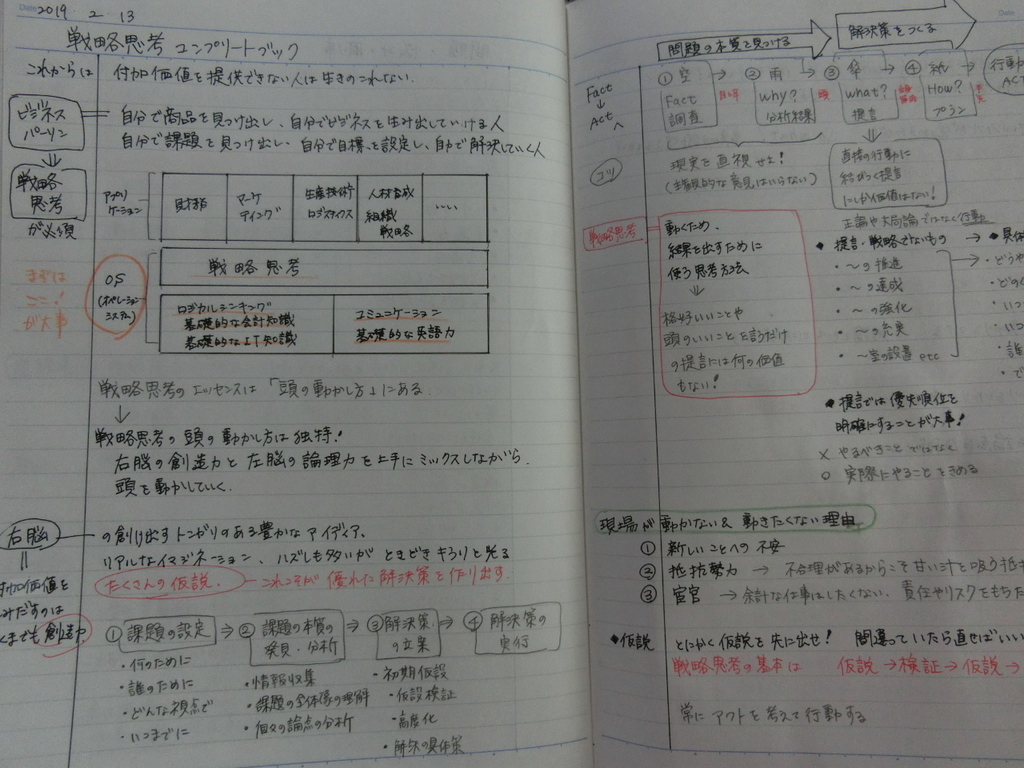 2019 2 13
戦略思考コンプリートブック
これからは 付加価値を提供できない人は生きのこれない.
ビジネスパーソン
自分で商品を見つけ出し、自分でビジネスを生み出していける人
自分で課題を見つけ出し、自分で目標を設定し、自力で解決していく人
戦略思考
が必須
アプリケーション
財務
マーケティング
生産技術
ロジスティクス
人材育成
組織
戦略
.....
OS
(オペレーションシステム)
まずは
ここ!
が大事
戦略思考
ロジカルシンキング
基礎的な会計知識
基礎的なIT知識
コミュニケーション
基礎的な英語力
戦略思考のエッセンスは「頭の動かし方」にある.
↓
戦略思考の頭の動かし方は独特!
右脳の創造力と左脳の論理力を上手にミックスしながら、
頭を動かしていく.
右脳 の創り出すトンガリのある豊かなアイディア、
リアルなイマジネーション、ハズレも多いがときどきキラリと光る
たくさんの仮説. これこそが優れた解決策を作り出す.
付加価値を
くまでも創造力
① 課題の設定 → ② 課題の本質の発見・分析 → ③ 解決策の立案 → ④ 解決策の実行
・何のために
・誰のために
・どんな視点で
・いつまでに
・情報収集
・課題の全体像の理解
・個々の論点の分析
・初期仮設
・仮設検証
・高度化
・解決の具体策
問題の本質を見つける
解決策をつくる
Fact
↓
Act
へ
① 空 → ② 雨 → ③ 傘 → ④ 紙 →
行動
Fact
調査
why?
分析結果
what?
提言
How?
プラン
コツ
現実を直視せよ!
直接の行動に
結びつく提言
にしか価値はない!
正論や大局論ではなく行動
戦略思考
動くため、
結果を出すために
使う思考方法
↓
格好いいことや
頭のいいことを言うだけ
の提言には何の価値
もない!
◆ 提言・戦略でないもの → ◆ 具体
・〜の推進
・〜の達成
・〜の強化
・〜の充実
・〜室の設置 etc
・どうや
・いつ
・誰
・で
◆ 提言では優先順位を
明確にすることが大事!
× やるべきことではなく
○ 実際にやることをきめる
現場が動かない&動きたくない理由
① 新しいことへの不安
② 抵抗勢力 → 不合理があるからこそ甘い汁を吸う抵抗
③ 宦官 → 余計な仕事はしたくない、責任やリスクをもちた
◆ 仮説 とにかく仮説を先に出せ! 間違っていたら直せばいい
戦略思考の基本は 仮説→検証→仮説→
常にアクトを考えて行動する